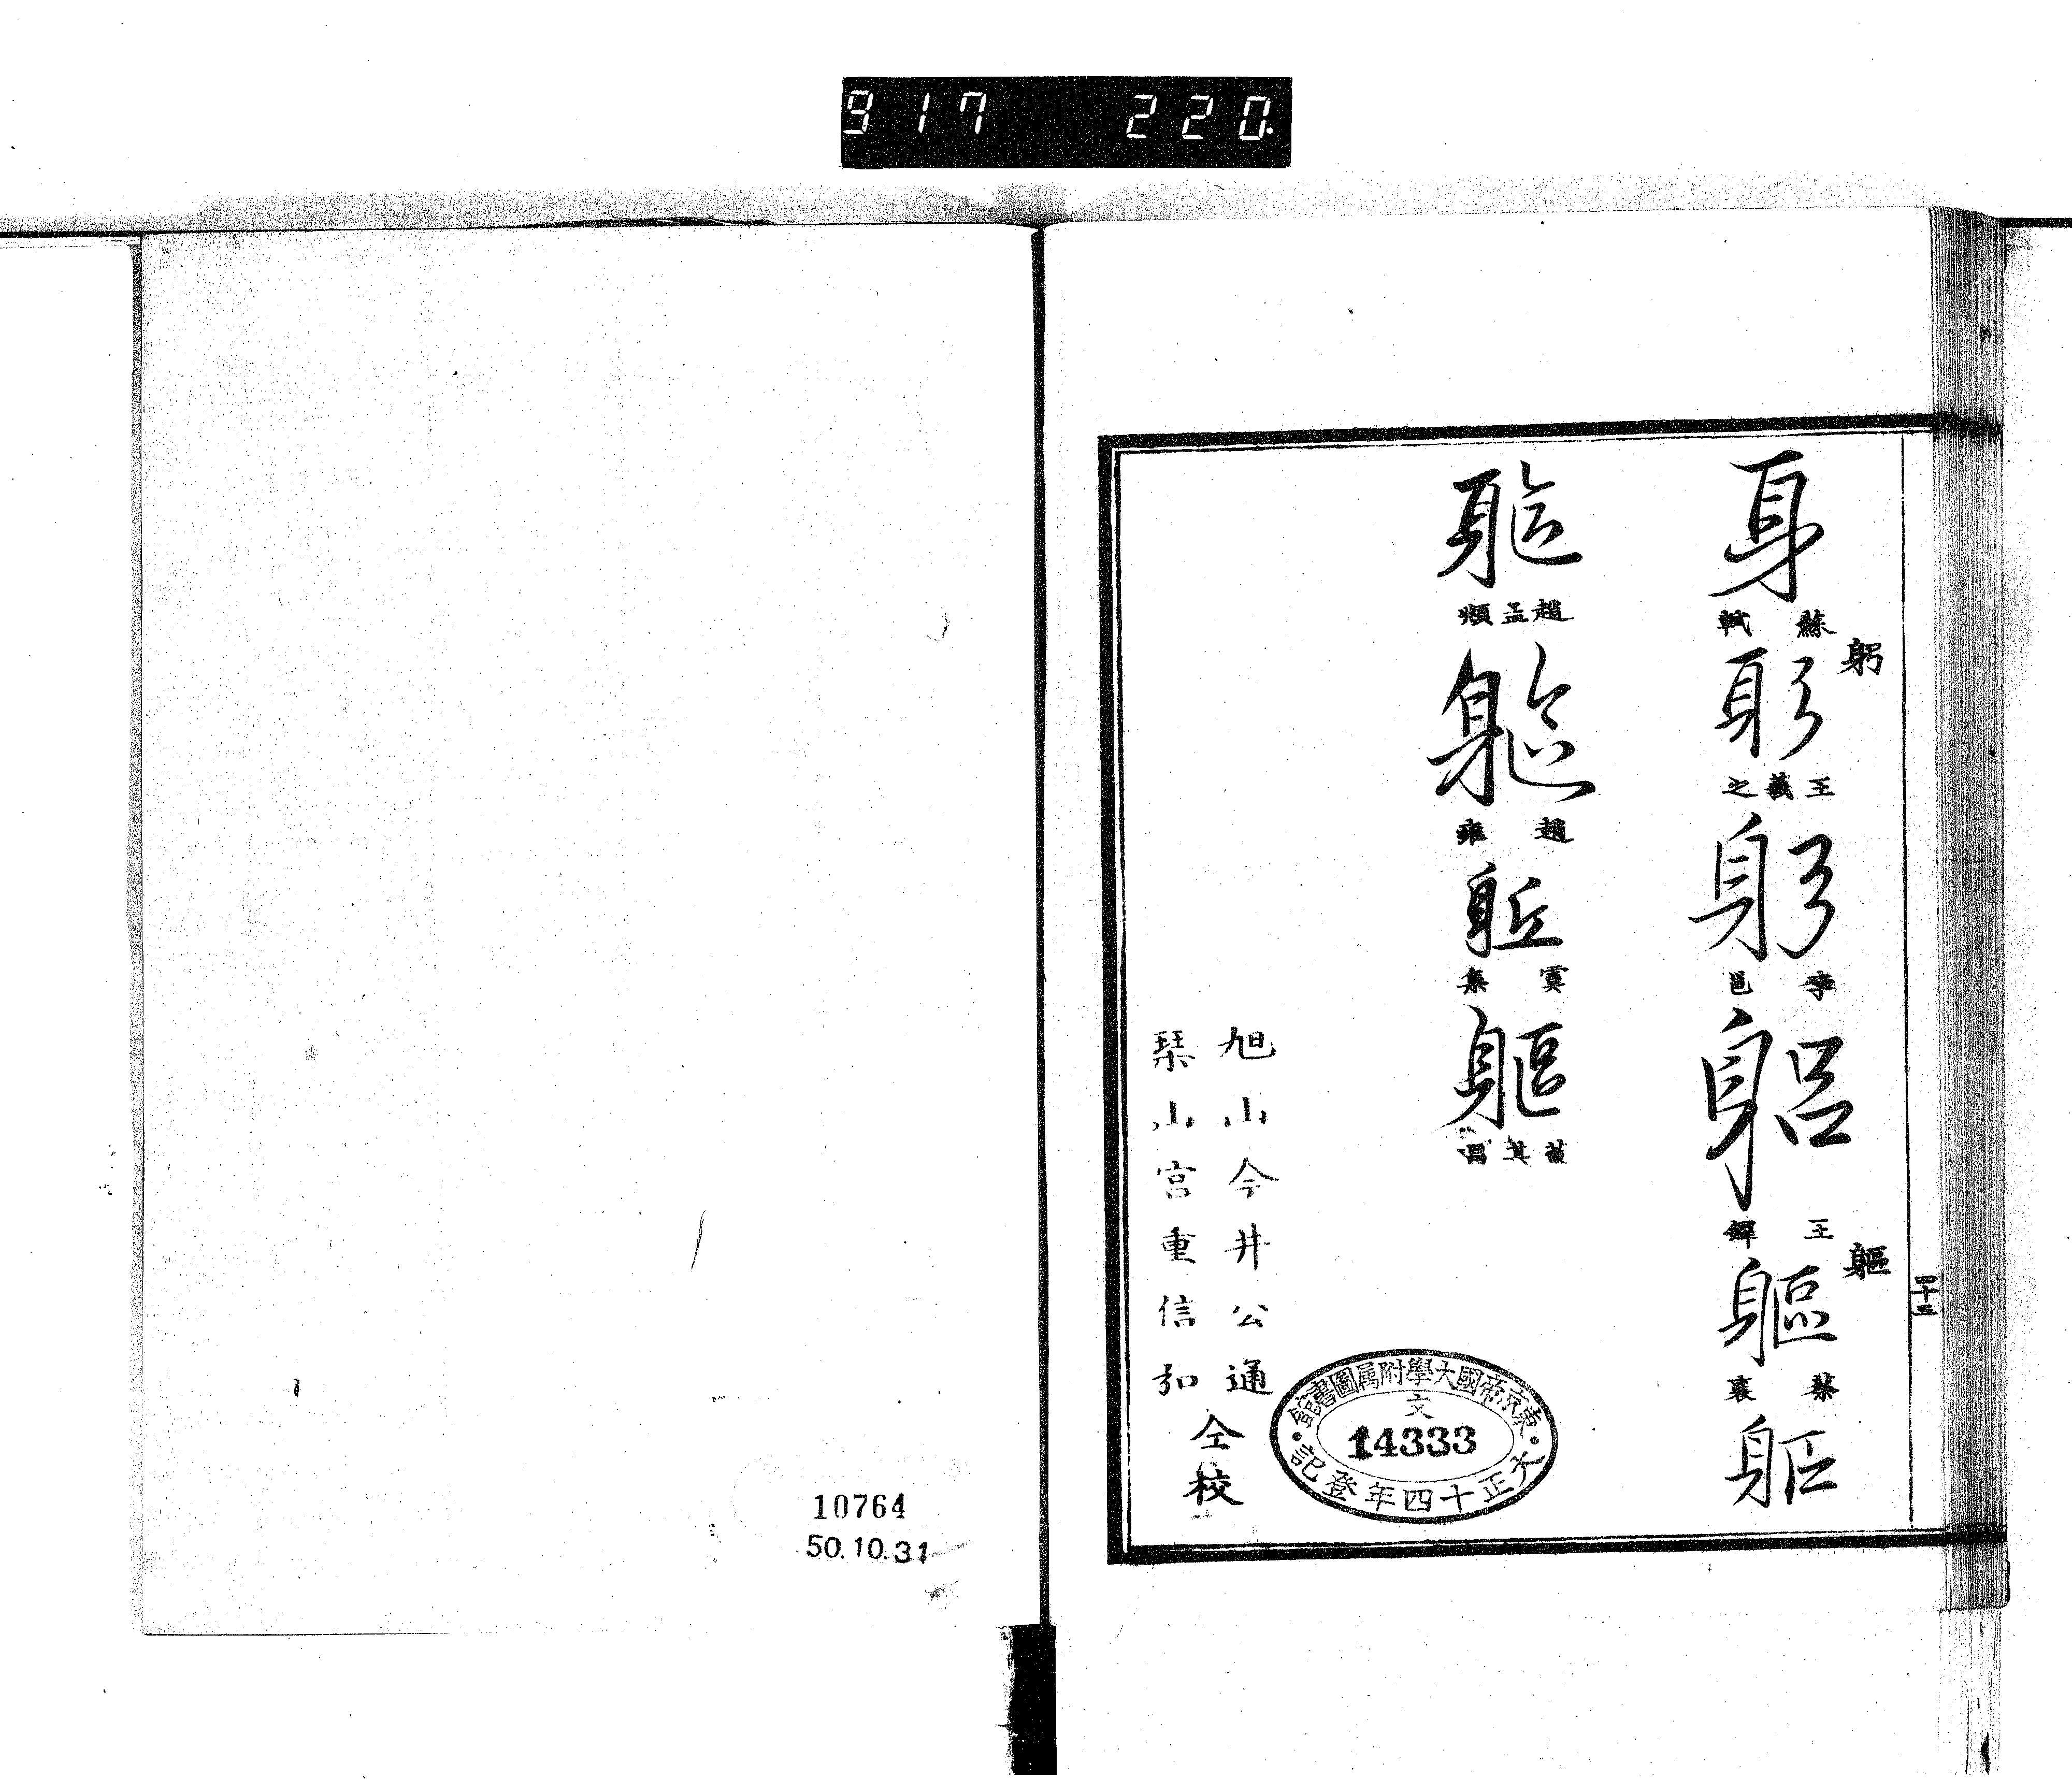 917 220.
身
蘇軾
躬
躬
王羲之
躬
李邕
躳
王鐸
軀
軀
蔡襄
軀
四十三
軀
趙孟頫
軀
趙雍
軀
虞集
軀
董其昌
旭山今井公通
琹山宮重信㔟
仝校
東京帝國大學附属圖書館
文
14333
大正十四年登記
10764
50.10.31